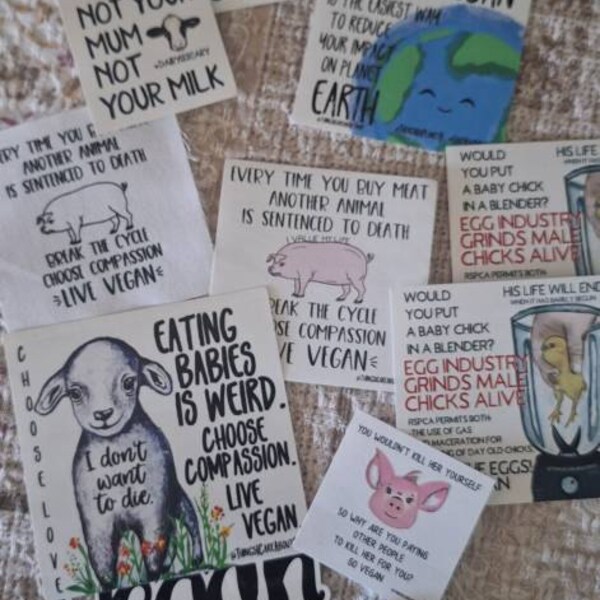 NOT YOUR
MUM
NOT
YOUR MILK
IS THE EASIEST WAY
TO REDUCE
YOUR IMPACT
ON PLANET
EARTH
EVERY TIME YOU BUY
ANOTHER ANIMAL
IS SENTENCED TO DEATH
BREAK THE CYCLE
CHOOSE COMPASSION
LIVE VEGAN
EVERY TIME YOU BUY MEAT
ANOTHER ANIMAL
IS SENTENCED TO DEATH
I VALUE MY LIFE
BREAK THE CYCLE
CHOOSE COMPASSION
LIVE VEGAN
WOULD
YOU PUT
A BABY CHICK
IN A BLENDER?
EGG INDUSTRY
GRINDS MALE
CHICKS ALIVE
RSPCA PERMITS BOTH
HIS LIFE
WOULD
YOU PUT
A BABY CHICK
IN A BLENDER?
EGG INDUSTRY
GRINDS MALE
CHICKS ALIVE
RSPCA PERMITS BOTH
THE USE OF GAS
MACERATION FOR
OF DAY OLD CHICKS
EGGS!
HIS LIFE WILL END
WHEN IT HAS BARELY BEGUN
CHOOSE LOVE
I don't
want
to die.
EATING
BABIES
IS WEIRD.
CHOOSE
COMPASSION.
LIVE
VEGAN
YOU WOULDN'T KILL HER YOURSELF
SO WHY ARE YOU PAYING
OTHER PEOPLE
TO KILL HER FOR YOU?
GO VEGAN